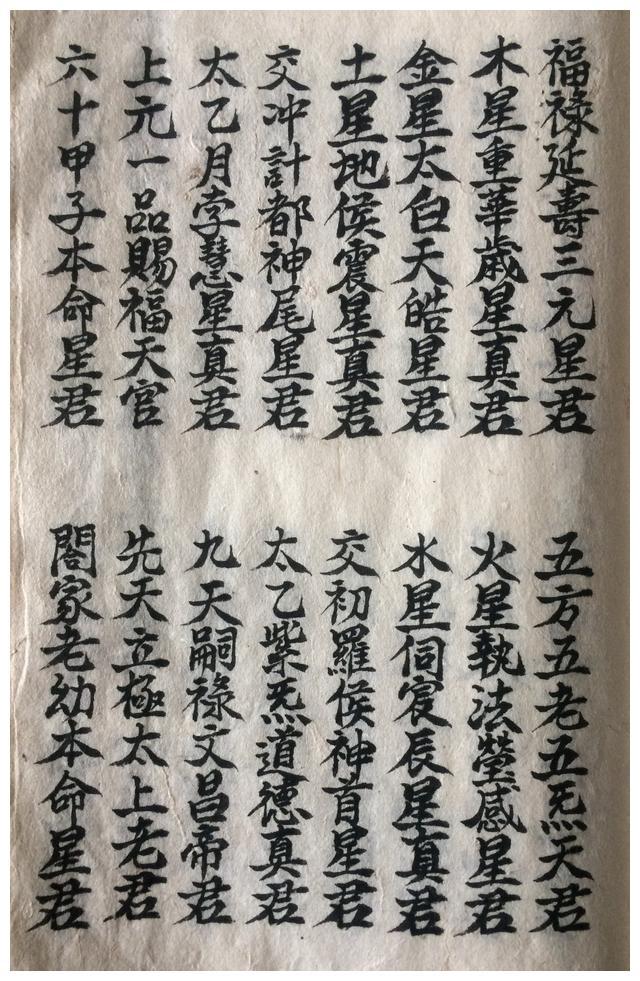 福祿延壽三元星君
五方五老五炁天君
木星重華歲星真君
火星執法螢感星君
金星太白天皓星君
水星伺宸辰星真君
土星地侯震星真君
交初羅侯神首星君
交冲計都神尾星君
太乙紫炁道德真君
太乙月孛慧星真君
九天嗣祿文昌帝君
上元一品賜福天官
先天立極太上老君
六十甲子本命星君
閤家老幼本命星君